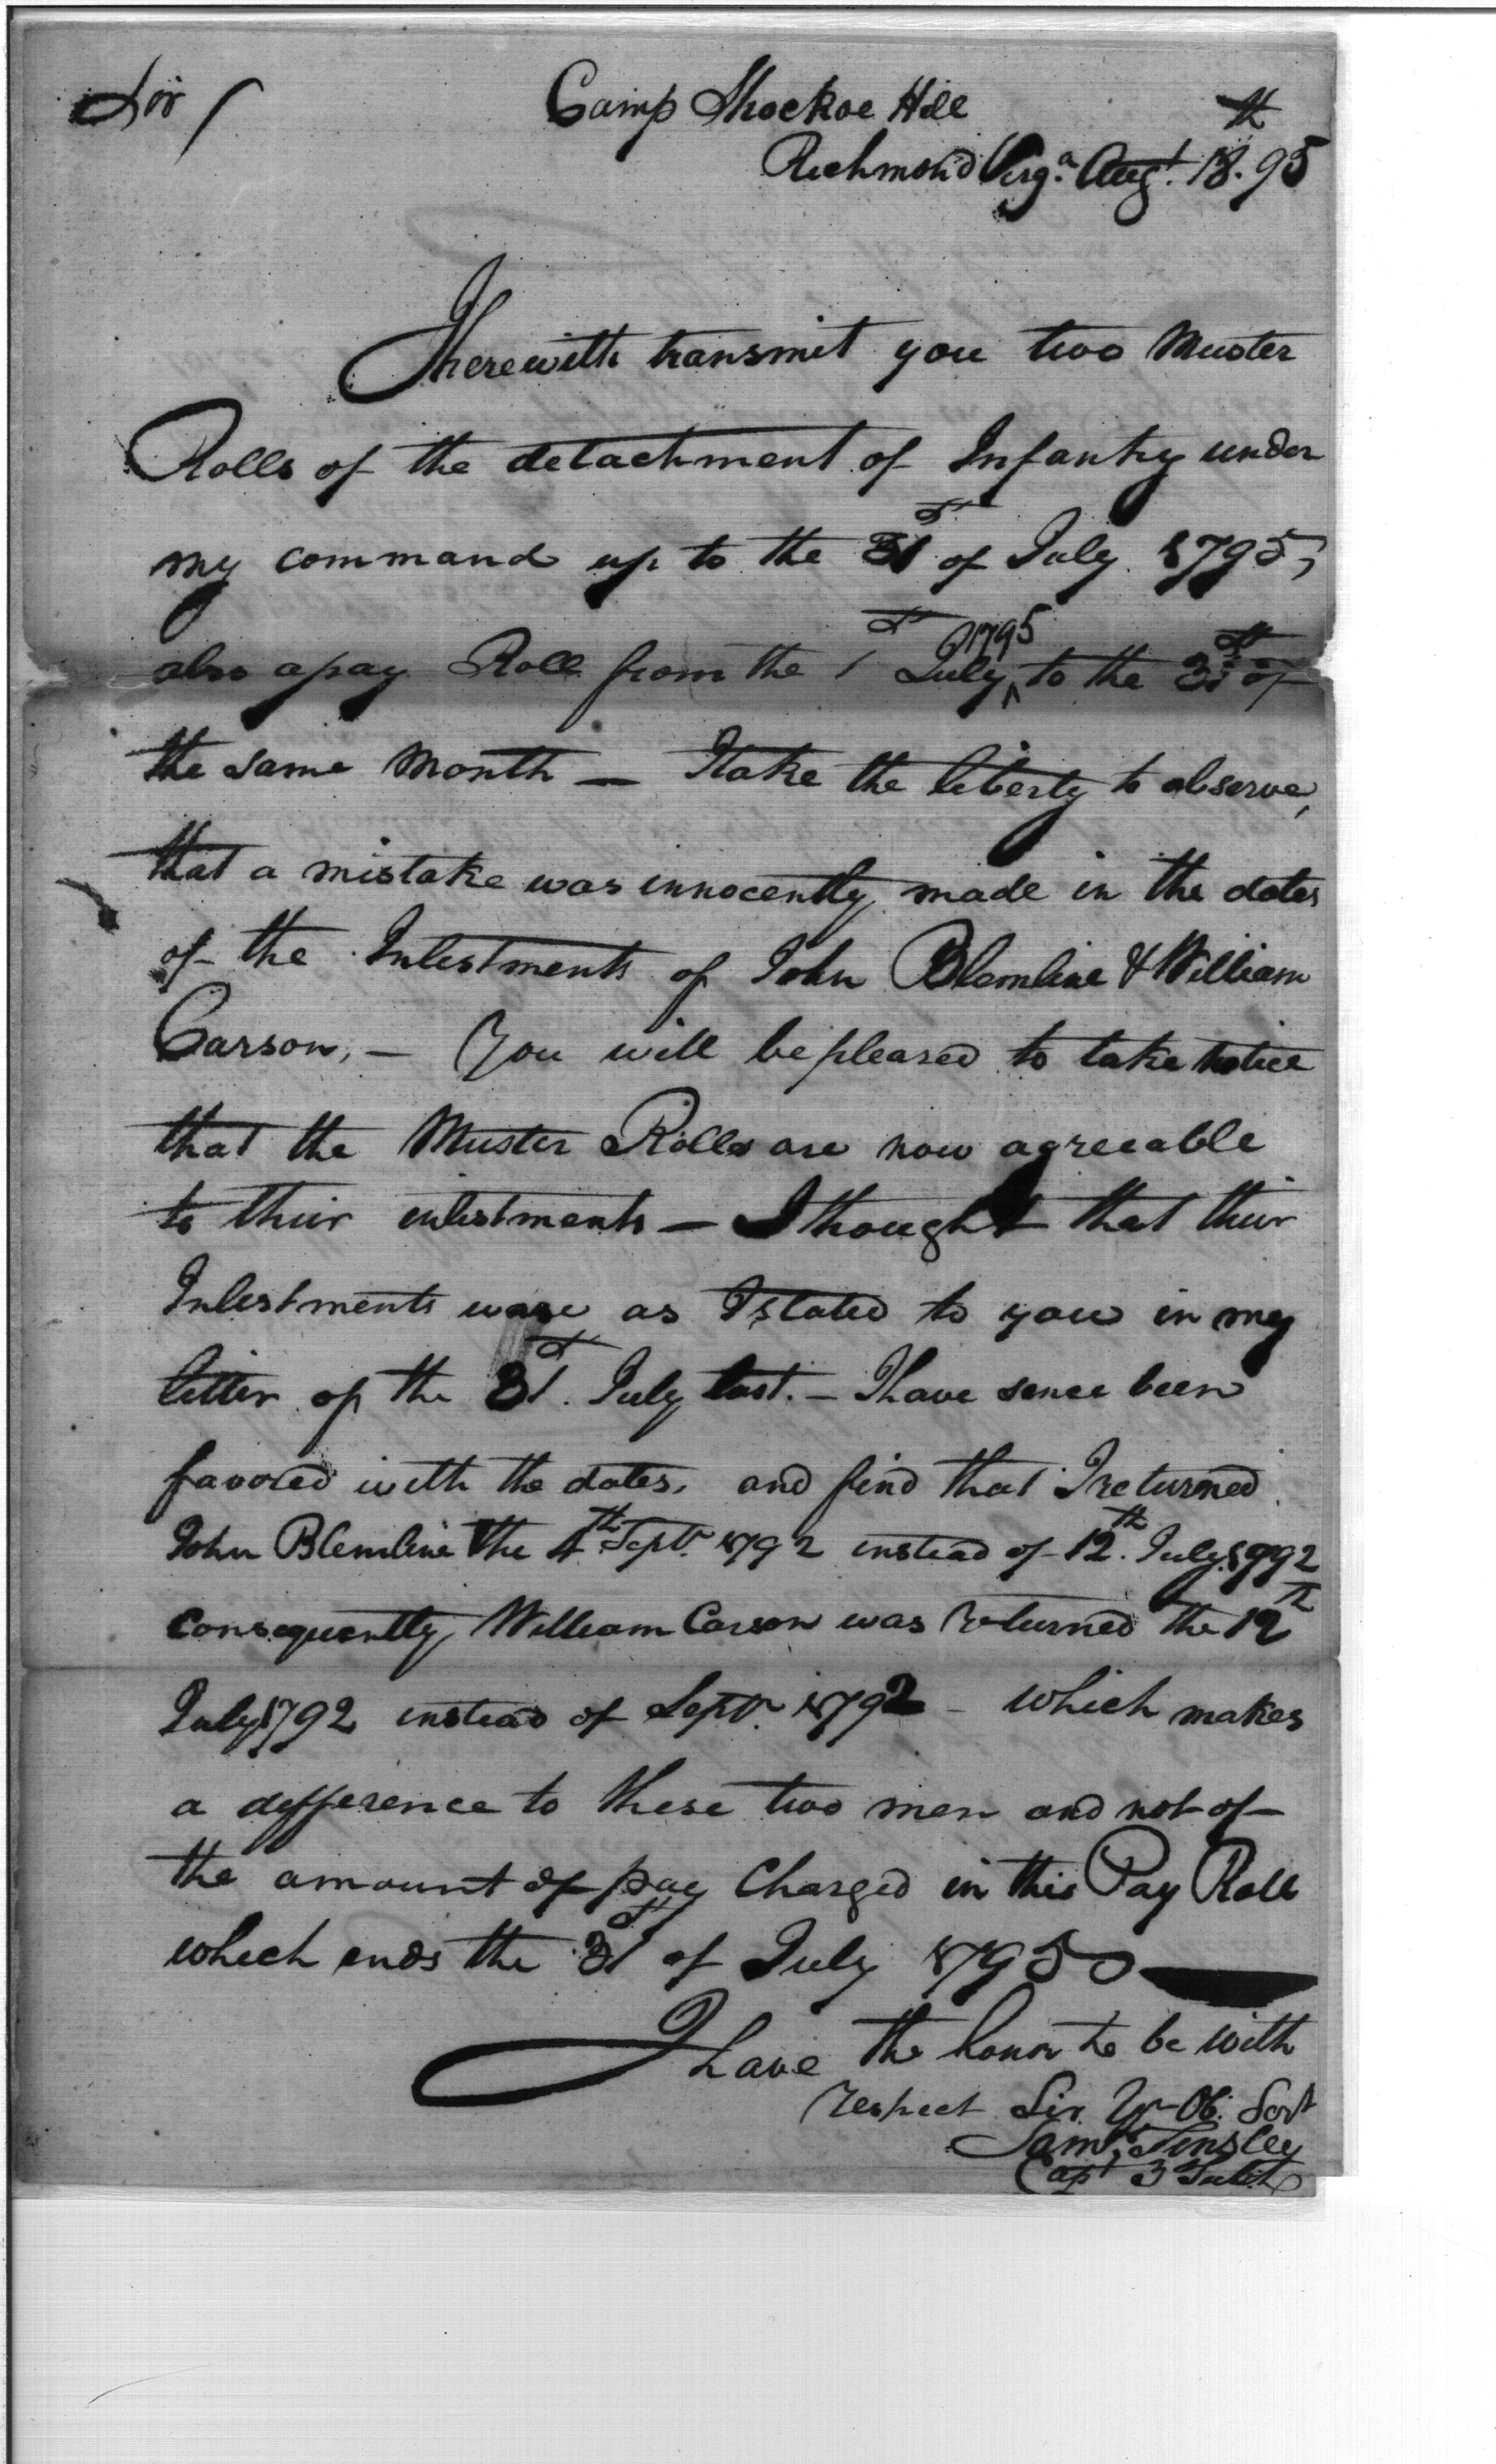 Sir /
Camp Shockoe Hill
Richmond Virg.a Augt. 18th. 95
I herewith transmit you two Muster
Rolls of the detachment of Infantry under
my command up to the 31st of July 1795,
also a pay Roll from the 1st July 1795 to the 31st of
the same Month — I take the liberty to observe,
that a mistake was innocently made in the dates
of the Inlistments of John Blemline & William
Carson, — You will be pleased to take notice
that the Muster Rolls are now agreeable
to their inlistments — I thought that their
Inlistments ware as I stated to you in my
letter of the 31st. July last. — I have since been
favored with the dates, and find that I returned
John Blemline the 4th Septr. 1792 instead of 12th. July 1792
Consequently, William Carson was returned the 12th
July 1792 instead of Septr. 1792 — which makes
a difference to these two men and not of
the amount of pay Charged in this Pay Roll
which ends the 31st of July 1795
I have the honor to be with
respect Sir Yr Ob. Sert
Saml. Tinsley
Capt 3